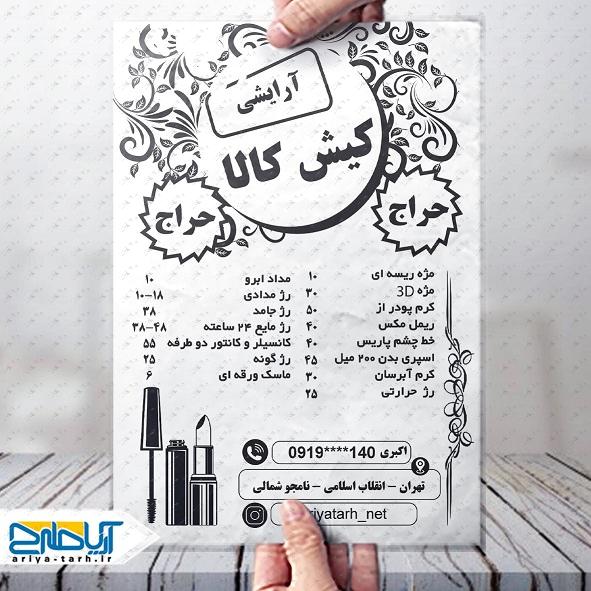 آرایشی
کیش کالا
حراج
حراج
مژه ریسه ای ۱۰
مژه 3D ۳۰
کرم پودر از ۵۰
ریمل مکس ۴۰
خط چشم پاریس ۴۰
اسپری بدن ۲۰۰ میل ۴۵
کرم آبرسان ۳۰
رژ حرارتی ۲۵
مداد ابرو ۱۰
رژ مدادی ۱۸-۱۰
رژ جامد ۳۸
رژ مایع ۲۴ ساعته ۴۸-۳۸
کانسیلر و کانتور دو طرفه ۵۵
رژ گونه ۲۵
ماسک ورقه ای ۶
اکبری 140****0919
تهران - انقلاب اسلامی - نامجو شمالی
riyatarh_net
آریا طرح
ariya-tarh.ir